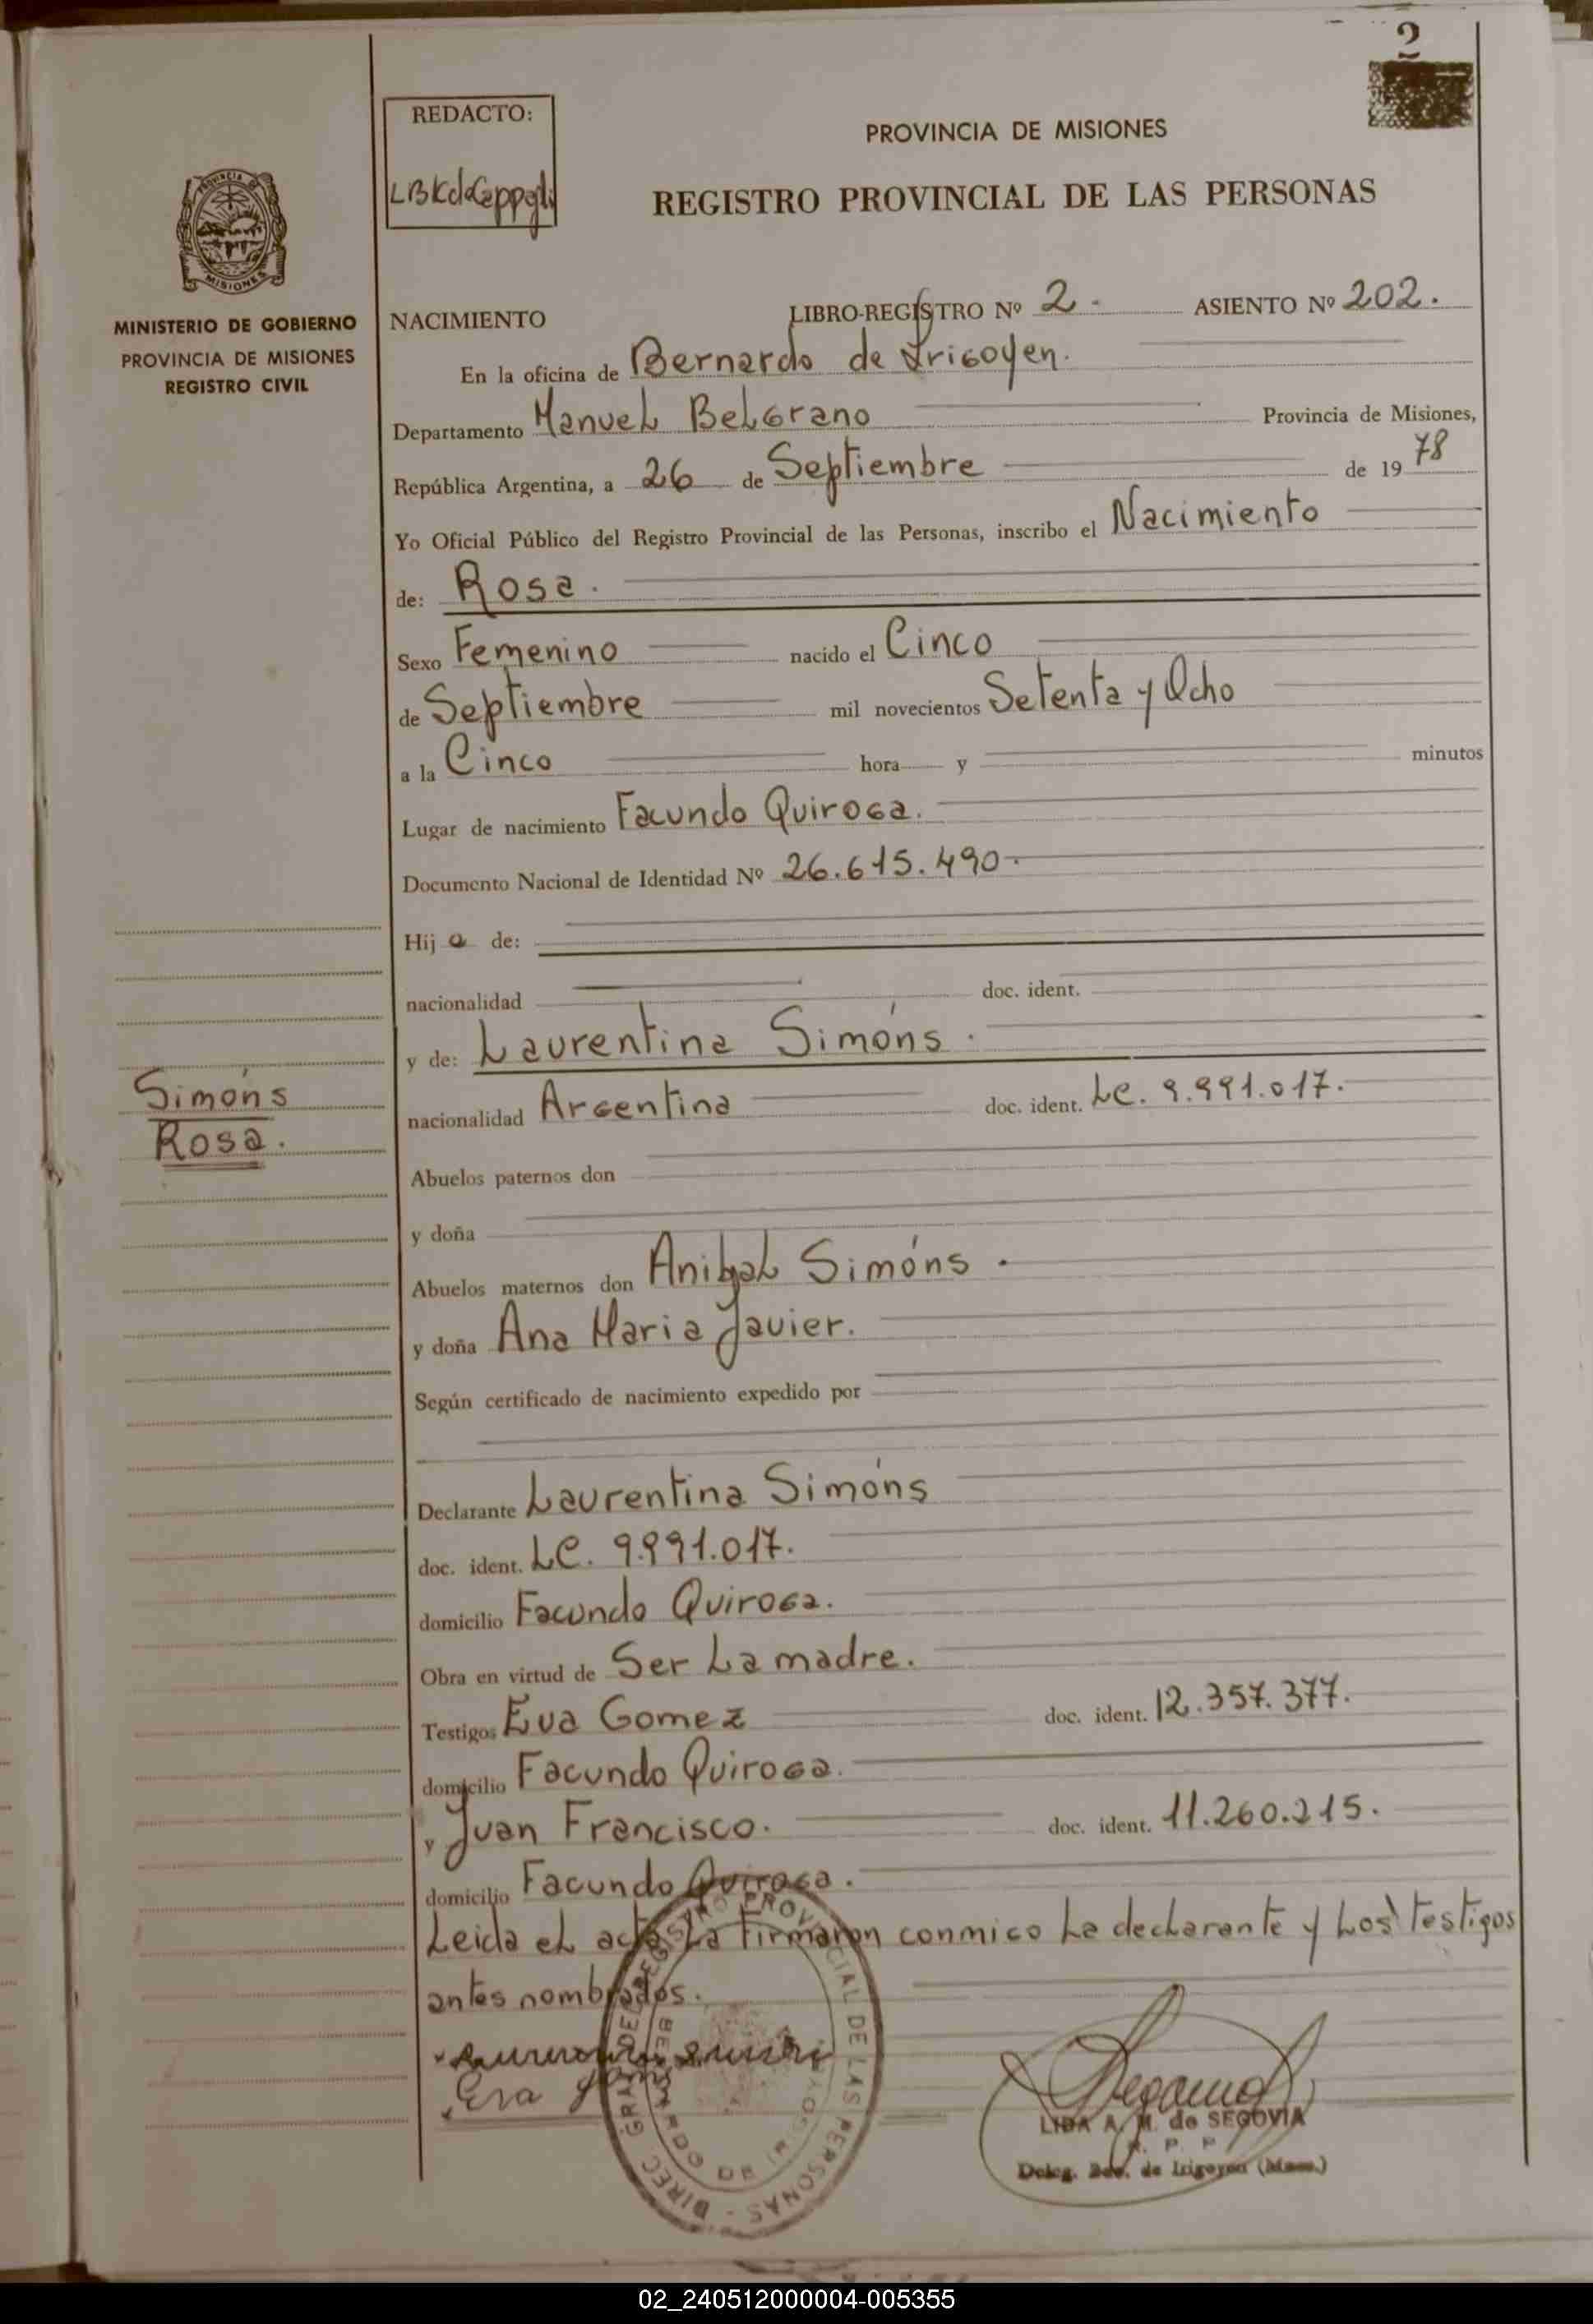 2
REDACTO:
PROVINCIA DE MISIONES
REGISTRO PROVINCIAL DE LAS PERSONAS
PROVINCIA DE
MISIONES
MINISTERIO DE GOBIERNO
PROVINCIA DE MISIONES
REGISTRO CIVIL
NACIMIENTO LIBRO-REGISTRO Nº 2 - ASIENTO Nº 202.
En la oficina de Bernardo de Irigoyen.
Departamento Manuel Belgrano Provincia de Misiones,
República Argentina, a 26 de Septiembre de 1978
Yo Oficial Público del Registro Provincial de las Personas, inscribo el Nacimiento
de: Rosa.
Sexo Femenino nacido el Cinco
de Septiembre mil novecientos Setenta y Ocho
a la Cinco hora y minutos
Lugar de nacimiento Facundo Quiroga.
Documento Nacional de Identidad Nº 26.615.490-
Hija de:
nacionalidad doc. ident.
y de: Laurentina Simóns.
nacionalidad Argentina doc. ident. LC. 9.991.017.
Simóns
Rosa.
Abuelos paternos don
y doña
Abuelos maternos don Anibal Simóns.
y doña Ana Maria Javier.
Según certificado de nacimiento expedido por
Declarante Laurentina Simóns
doc. ident. LC. 9.991.017.
domicilio Facundo Quiroga.
Obra en virtud de Ser La madre.
Testigos Eva Gomez doc. ident. 12.357.377.
domicilio Facundo Quiroga.
y Juan Francisco. doc. ident. 11.260.215.
domicilio Facundo Quiroga.
Leida el acta La firmaron conmigo La declarante y Los testigos
antes nombrados.
Eva
DIREC GRAL DEL REGISTRO PROVINCIAL DE LAS PERSONAS -
BERNARDO DE IRIGOYEN
Segovia
LIDA A. M. de SEGOVIA
Deleg. Bdo. de Irigoyen (Mnes.)
02_240512000004-005355